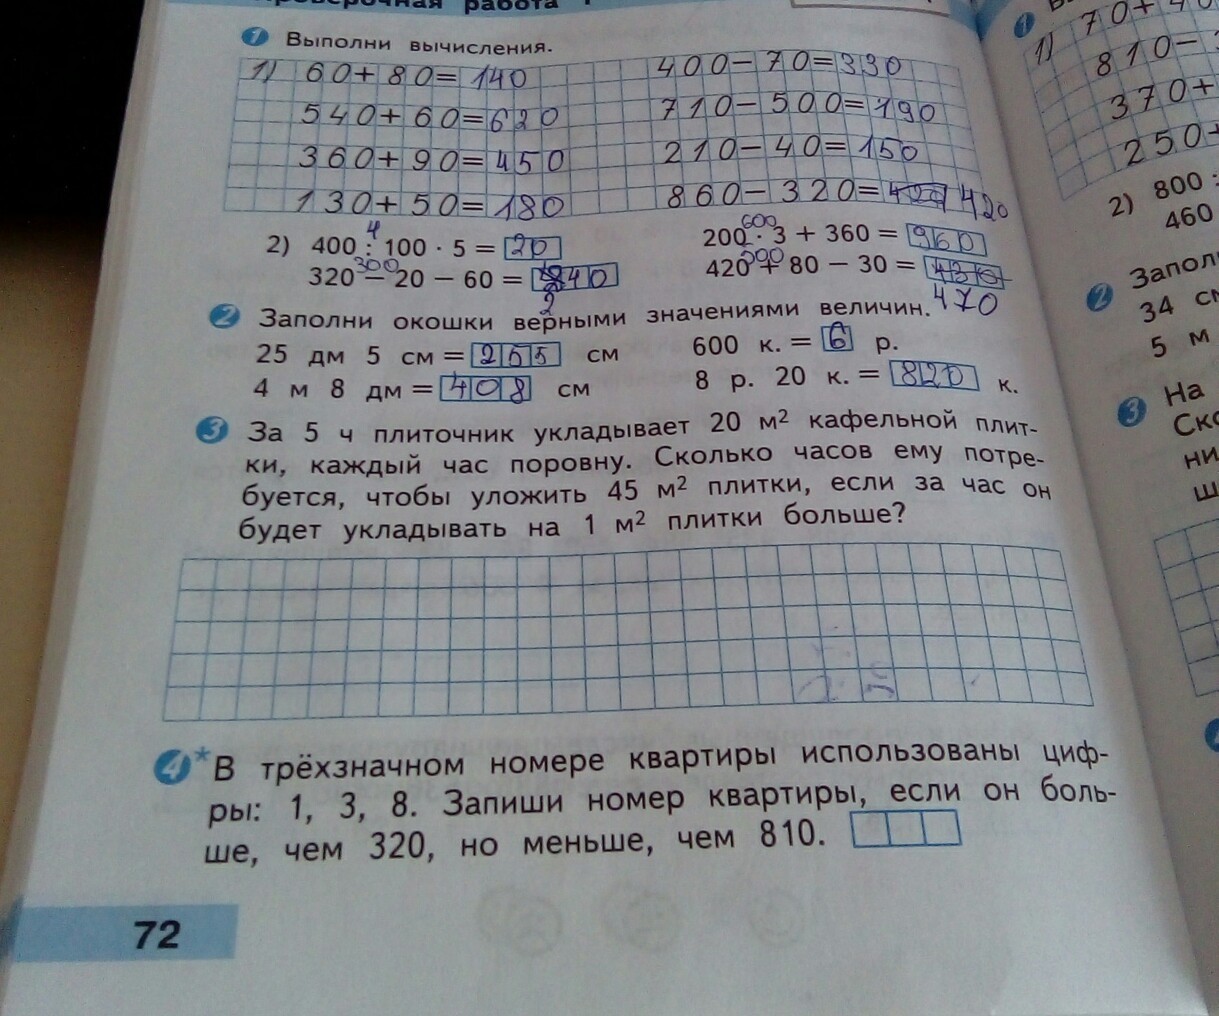 проверочная работа
1 Выполни вычисления.
1) 60+80=140 400-70=330
540+60=620 710-500=190
360+90=450 210-40=150
130+50=180 860-320=420 420
4 600
2) 400 : 100 · 5 = 20 200 · 3 + 360 = 960
300 500
320 − 20 − 60 = 240 420 + 80 − 30 = 430
470
2 Заполни окошки верными значениями величин.
25 дм 5 см = 255 см 600 к. = 6 р.
4 м 8 дм = 408 см 8 р. 20 к. = 820 к.
3 За 5 ч плиточник укладывает 20 м² кафельной плит-
ки, каждый час поровну. Сколько часов ему потре-
буется, чтобы уложить 45 м² плитки, если за час он
будет укладывать на 1 м² плитки больше?
4* В трёхзначном номере квартиры использованы циф-
ры: 1, 3, 8. Запиши номер квартиры, если он боль-
ше, чем 320, но меньше, чем 810.
72
1
1) 70+40
810−
370+
250+
2) 800 :
460
2 Запол
34 см
5 м
3 На
Ско
ни
ш